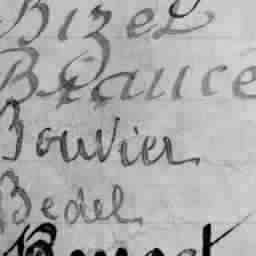 Bizet
Beaucé
Bouvier
Bedel